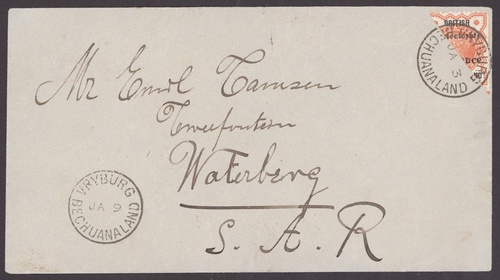 BRITISH
VRYBURG
BECHUANALAND
JA 3
Mr Emil Tamsen
Tweefontein
Waterberg
S. A. R
VRYBURG
JA 9
BECHUANALAND